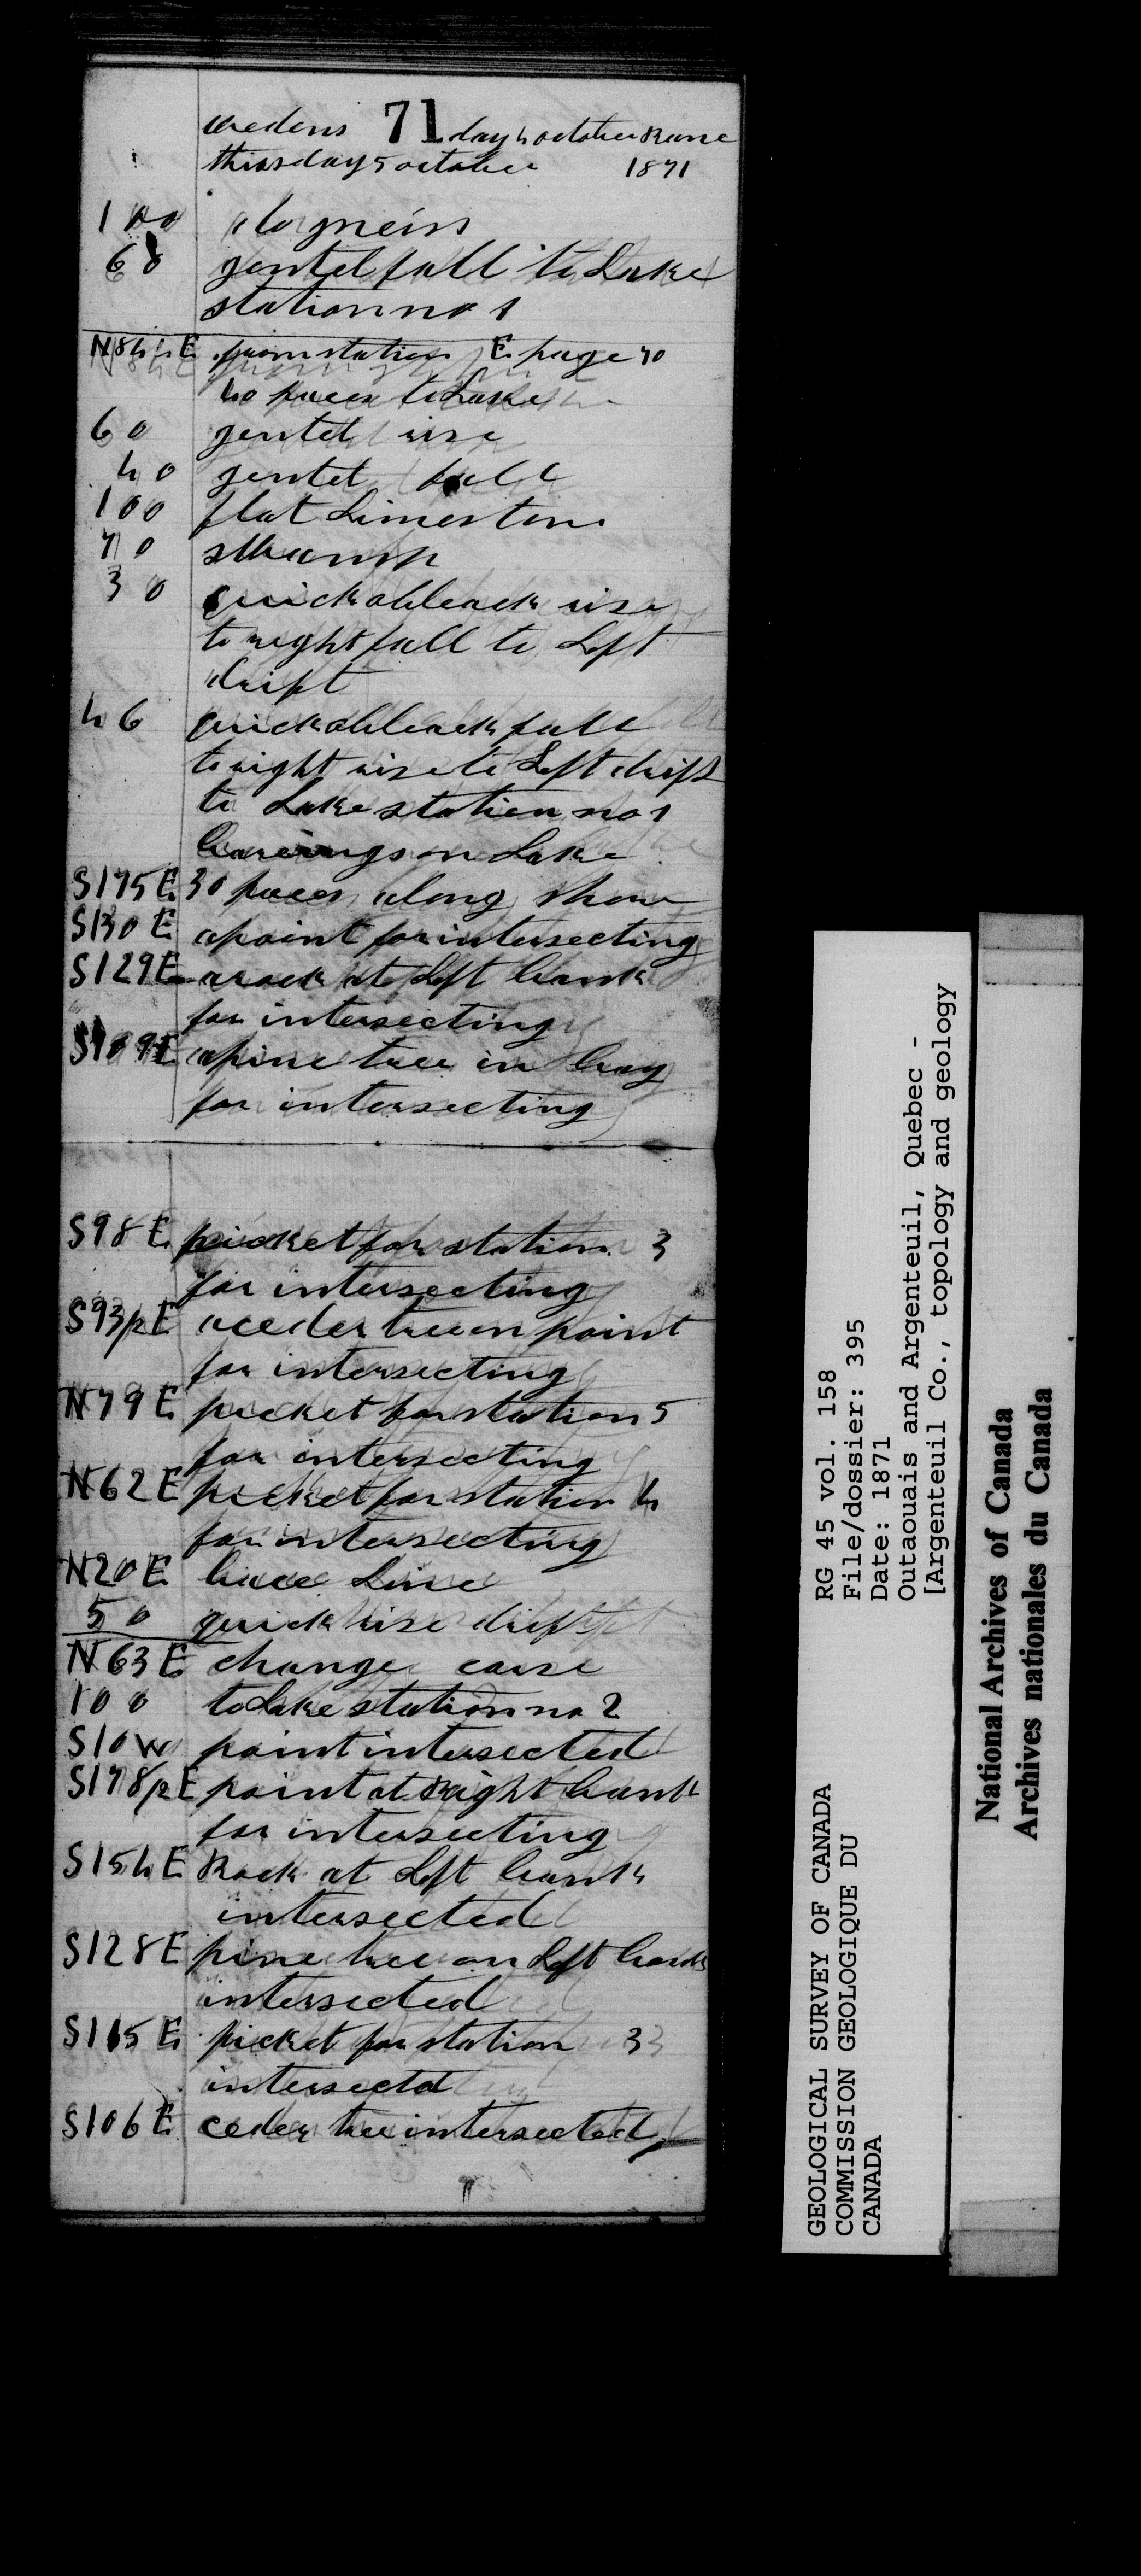 wedens 71 day 4 october Rane
thirsday 5 october 1871
100 do gneiss
60 gentel fall to Lake
station no 1
N84 E from station E page 70
40 paces to Lake
60 gentel rise
40 gentel fall
100 flat Limestone
70 swamp
30 quick obleack rise
to right fall to Left
drift
46 quick obleack fall
to right rise to Left drift
to Lake station no 1
bearings on Lake
S175 E 30 paces along shore
S130 E a point for intersecting
S129 E a rock at Left bank
for intersecting
S109 E a pine tree in bay
for intersecting
S98 E picket for station 3
for intersecting
S93/2 E a ceder tree on point
for intersecting
N79 E picket for station 5
for intersecting
N62 E picket for station 4
for intersecting
N20 E bace Line
50 quick rise drift
N63 E change carse
100 to Lake station no 2
S10 W point intersected
S178/2 E point at Right bank
for intersecting
S154 E Rock at Left bank
intersected
S128 E pine tree on Left bank
intersected
S115 E picket for station 3
intersected
S106 E ceder tree intersected
GEOLOGICAL SURVEY OF CANADA
COMMISSION GEOLOGIQUE DU
CANADA
RG 45 vol. 158
File/dossier: 395
Date: 1871
Outaouais and Argenteuil, Quebec -
[Argenteuil Co., topology and geology
National Archives of Canada
Archives nationales du Canada